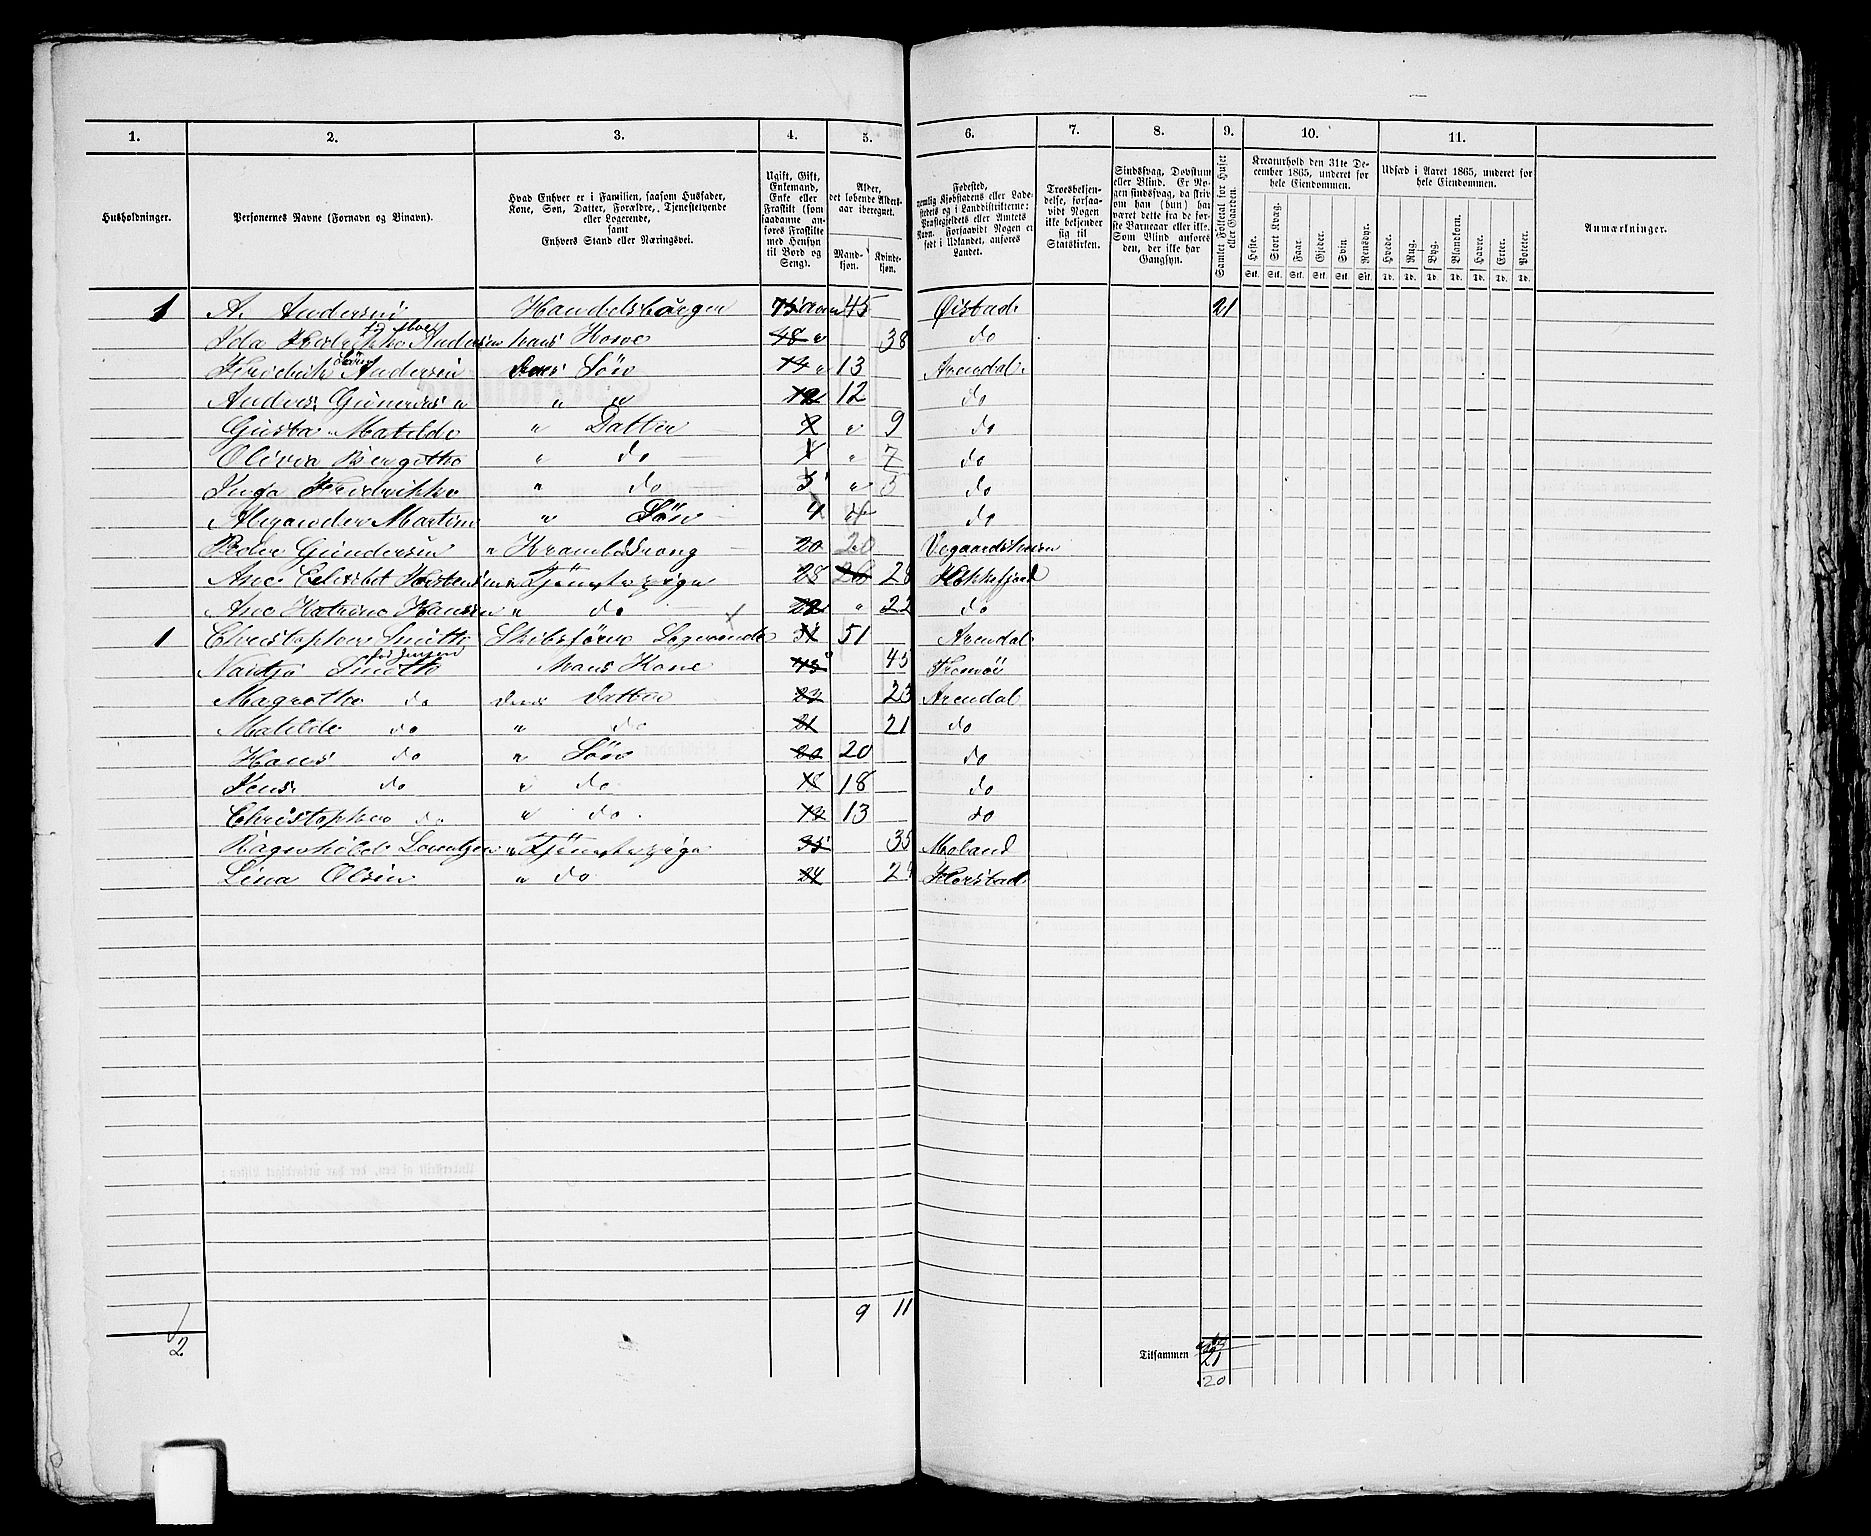 1. 2. 3. 4. 5. 6. 7. 8. 9. 10. 11.
Husholdninger.
Personernes Navne (Fornavn og Binavn).
Hvad Enhver er i Familien, saasom Husfader, Kone, Søn, Datter, Forældre, Tjenestetyende eller Logerende, samt Enhvers Stand eller Næringsvei.
Ugift, Gift, Enkemand, Enke eller Fraskilt (som saadanne anføres Fraskilte med Hensyn til Bord og Seng).
Alder, det løbende Alders­aar iberegnet.
Mandkjøn. Kvindekjøn.
Fødested, nemlig Kjøbstadens eller Ladestedets og i Landdistrikterne: Præstegjeldets eller Amtets Navn. Forsaavidt Nogen er født i Udlandet, anføres Landet.
Troesbekjendelse, forsaavidt Nogen ikke bekjender sig til Statskirken.
Sindssvag, Døvstum eller Blind. Er Nogen sindssvag, da skrives om han (hun) har været dette fra de første Barneaar eller ikke. Som Blind anføres den, der ikke har Gangsyn.
Samlet Folketal for Huset eller Gaarden.
Kreaturhold den 31te December 1865, underet for hele Eiendommen.
Heste. Stort Kvæg. Faar. Gjeder. Svin. Rensdyr.
Stk. Stk. Stk. Stk. Stk. Stk.
Udsæd i Aaret 1865, underet for hele Eiendommen.
Hvede. Rug. Byg. Blandkorn. Havre. Erter. Poteter.
Td. Td. Td. Td. Td. Td. Td.
Anmærkninger.
1 A. Andersen Handelsborger 45 Øistad 21
Ida Fredrikke Andersen hans Kone 48 38 do
Frederik Andersen deres Søn 14 13 Arendal
Andres Gunerius " " " 12 12 do
Gusta Matilde " Datter " 9 do
Olivia Bergitte " do " 7 do
Inga Fredrikke " do 5 " 5 do
Alexander Martin " Søn 4 4 do
Peder Gundersen " Krambodreng 20 20 Vegaardsheien
Ane Elisabet Tjenestepige 28 28
Ane Katrine Hansen " do 22 " 22 do
1 Christopher Smitte Skibsfører Logerende 51 51 Arendal
Smitte Hans Kone 45 45 Tromøe
Magrethe do deres Datter 23 23 Arendal
Matilde do " do 21 21 do
Hans do " Søn 20 20 do
Jens do " do 18 18 do
Christopher do " do 13 do
Ragenhilde Lorentzen " Tjenestepige 35 35 Moland
Lina Olsen " do 24 24
9 11
2
Tilsammen 21
20